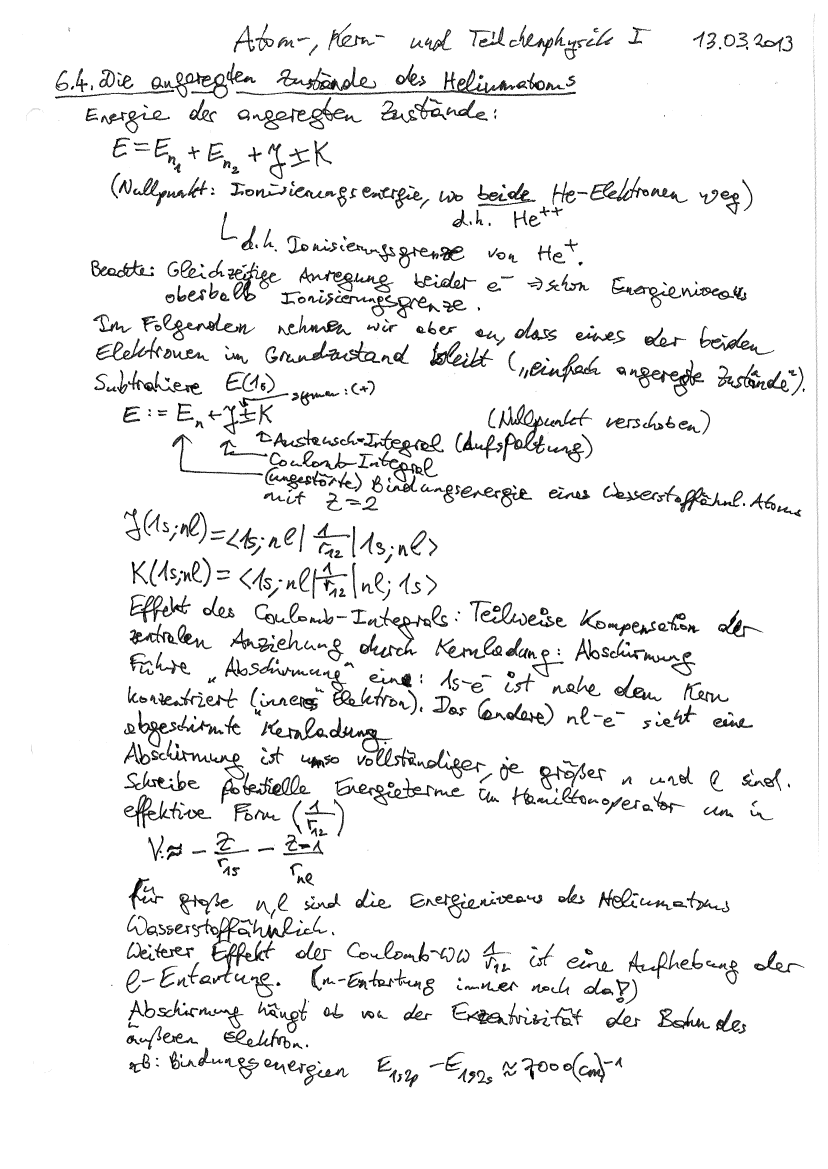 Atom-, Kern- und Teilchenphysik I 13.03.2013
6.4. Die angeregten Zustände des Heliumatoms
Energie der angeregten Zustände:
E = E_{n_1} + E_{n_2} + J ± K
(Nullpunkt: Ionisierungsenergie, wo beide He-Elektronen weg)
d.h. He⁺⁺
d.h. Ionisierungsgrenze von He⁺.
Beachte: Gleichzeitige Anregung beider e⁻ ⇒ schon Energieniveaus
oberhalb Ionisierungsgrenze.
Im Folgenden nehmen wir aber an, dass eines der beiden
Elektronen im Grundzustand bleibt („einfach angeregte Zustände").
Subtrahiere E(1s) symm.: (+)
E := E_n + J ± K (Nullpunkt verschoben)
Austausch-Integral (Aufspaltung)
Coulomb-Integral
(ungestörte) Bindungsenergie eines Wasserstoffähnl. Atoms
mit Z=2
J(1s;nl) = <1s;nl| 1/r₁₂ |1s;nl>
K(1s;nl) = <1s;nl| 1/r₁₂ |nl;1s>
Effekt des Coulomb-Integrals: Teilweise Kompensation der
zentralen Anziehung durch Kernladung: Abschirmung
Führe „Abschirmung" ein: 1s-e⁻ ist nahe dem Kern
konzentriert (inneres Elektron). Das (andere) nl-e⁻ sieht eine
abgeschirmte Kernladung.
Abschirmung ist umso vollständiger, je größer n und l sind.
Schreibe potentielle Energieterme im Hamiltonoperator um in
effektive Form (1/r₁₂)
V ≈ - Z/r_{1s} - Z-1/r_{nl}
Für große n,l sind die Energieniveaus des Heliumatoms
Wasserstoffähnlich.
Weiterer Effekt der Coulomb-WW 1/r₁₂ ist eine Aufhebung der
l-Entartung. (m-Entartung immer noch da!)
Abschirmung hängt ab von der Exzentrizität der Bahn des
äußeren Elektron.
zB: Bindungsenergien E_{1s2p} - E_{1s2s} ≈ 7000 (cm)⁻¹